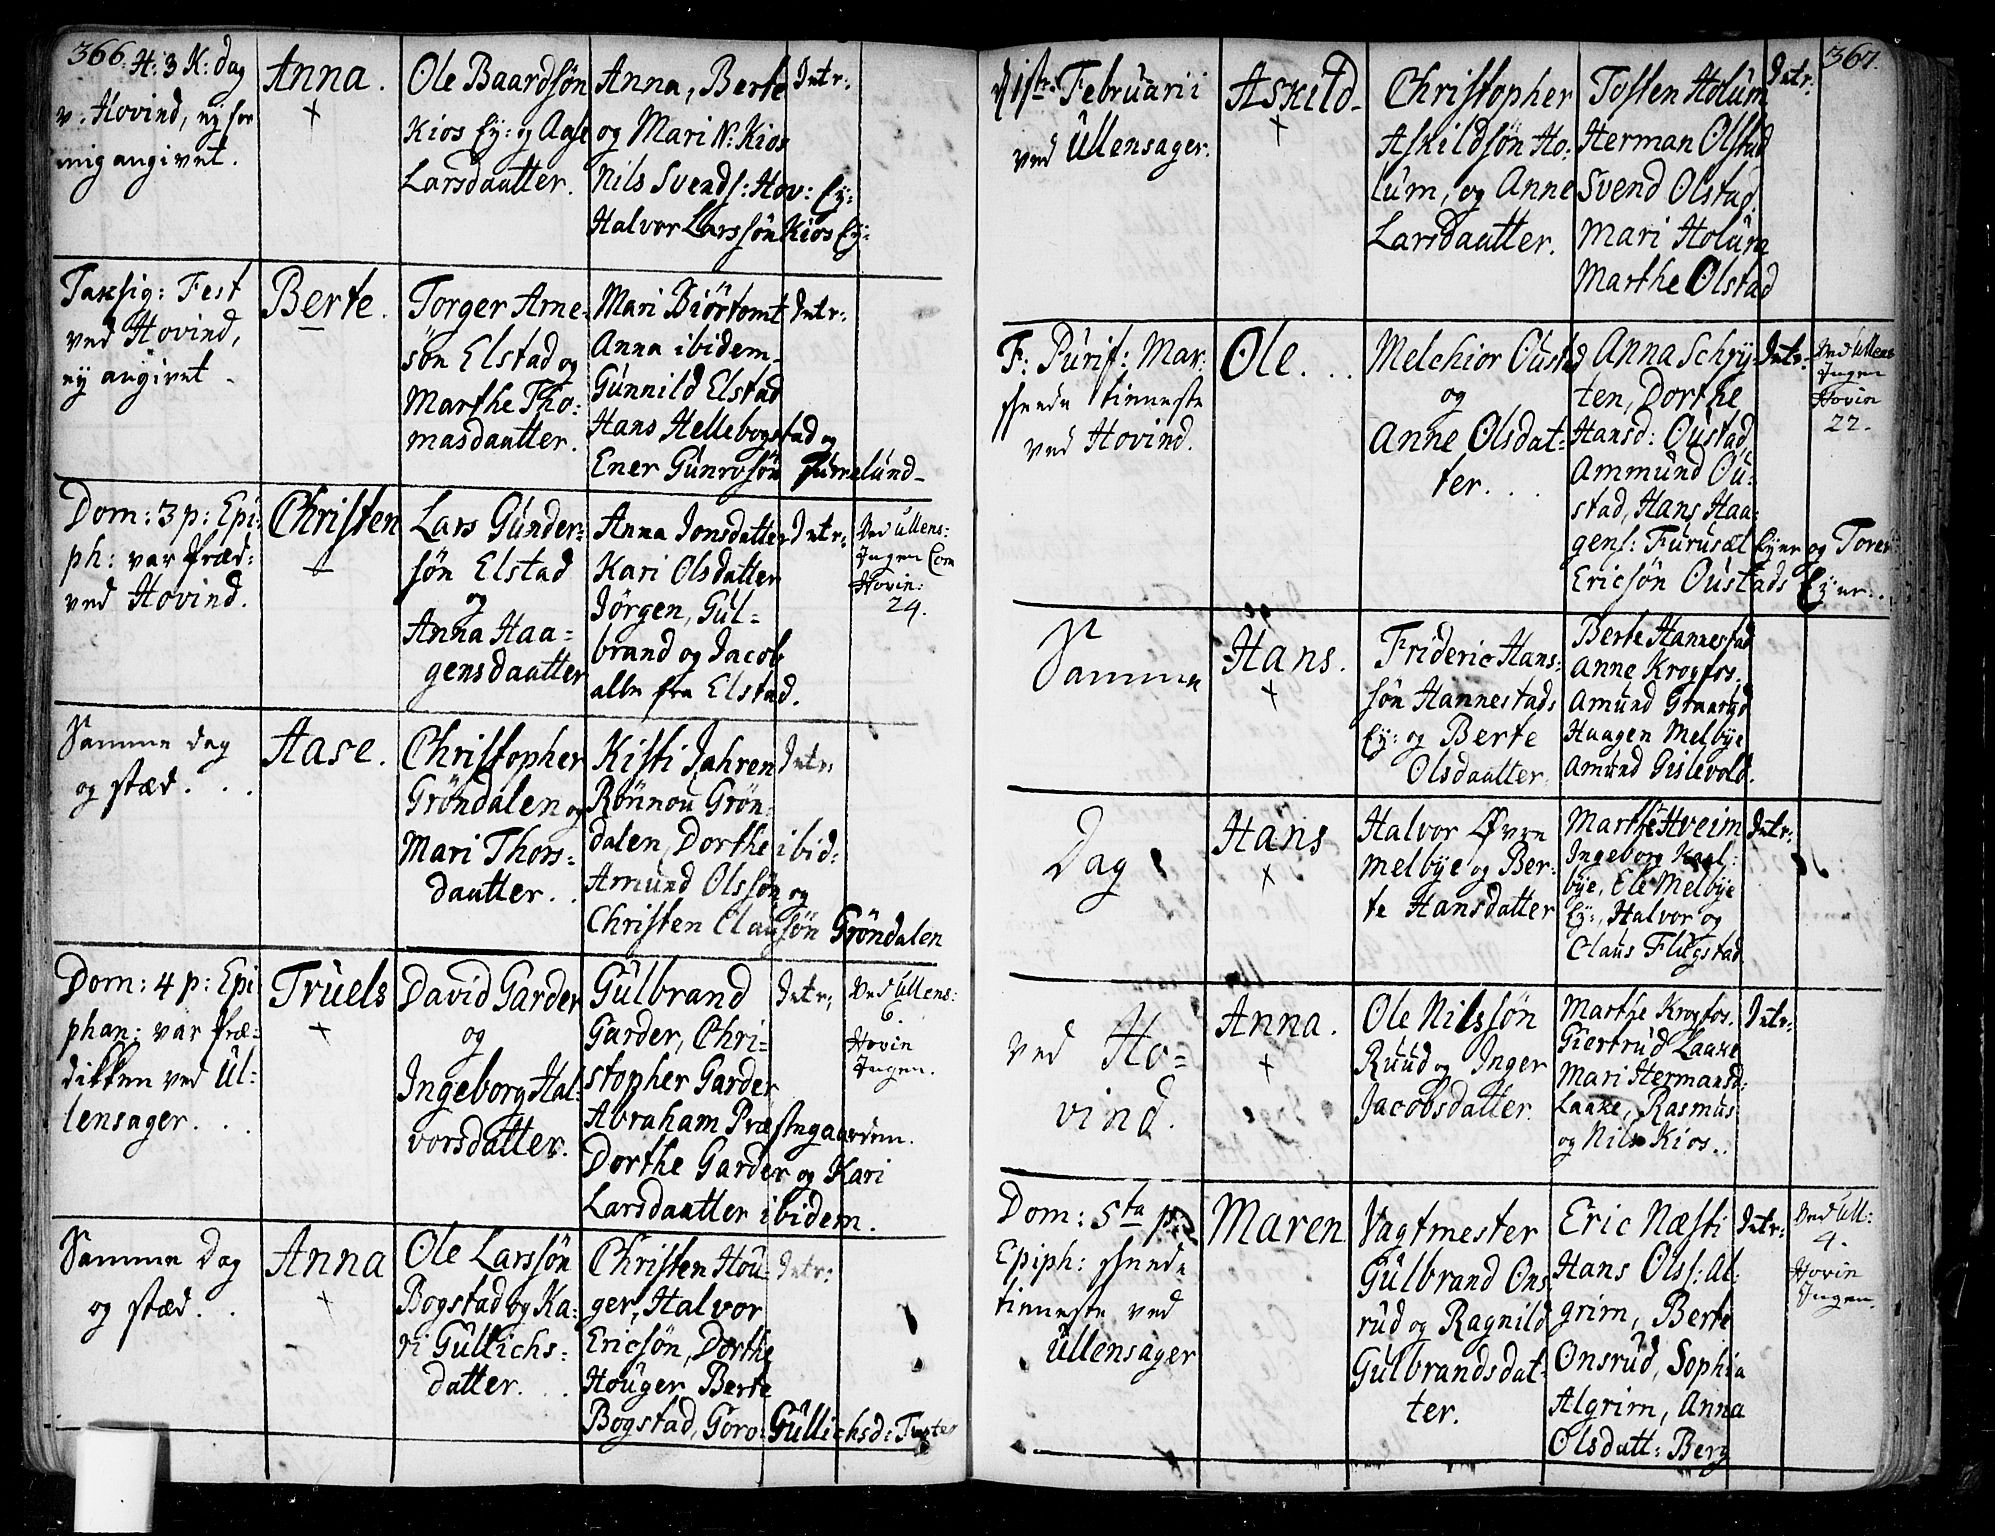 366.
H: 3 K: dag
v. Hovind, ny for
mig angivet.
Anna.
Ole Baardsön
Kios Ey: og Aase
Larsdaatter.
Anna, Berte
og Mari N: Kios
Nils Svends: Hov: Ey:
Halvor Larssön Kios Ey:
Intr:
Taksig: Fest
ved Hovind,
ny angivet.
Berte.
Torger Arne-
sön Elstad og
Marthe Tho:
masdaatter.
Mari Biörtomt
Anna ibidem
Gunnild Elstad
Hans Hellebogstad og
Ener Gunrosön Furulund
Intr:
Dom: 3 p: Epi:
ph: var Præd:
ved Hovind.
Christen
Lars Gunder-
sön Elstad
og
Anna Haa=
gensdaatter
Anna Jonsdatter
Kari Olsdatter
Jörgen, Gul-
brand og Jacob
alle fra Elstad.
Intr:
Ved Ullens:
Ingen Com
Hovin:
24.
Samme dag
og stæd. . .
Aase.
Christopher
Gröndalen og
Mari Thors-
daatter. .
Kisti Jahren
Rönnou Grön-
dalen, Dorthe ibid:
Amund Olssön og
Christen Clausön Gröndalen
Intr:
Dom: 4 p: Epi
phan: var Præ-
dikken ved Ul:
lensager. . .
Truels
David Garder
og
Ingeborg Hal-
vorsdatter.
Gulbrand
Garder, Chri-
stopher Garder
Abraham Præstegaarden.
Dorthe Garder og Kari
Larsdaatter ibidem.
Intr:
Ved Ullens:
6
Hovin
Ingen.
Samme Dag
og stæd. .
Anna
Ole Larssön
Bogstad og Ka-
ri Gullichs-
datter. . .
Christen Hou-
ger, Halvor
Ericsön, Dorthe
Houger, Berte
Bogstad, Goro: Gullichsd:
Intr:
367.
Februarii
ved Ullensager.
Askild.
Christopher
Askildsön Ho:
lum, og Anne
Larsdaatter.
Tosten Holum
Herman Olstad
Svend Olstad,
Mari Holum
Marthe Olstad
Intr:
F: Purif: Mar:
skeede tienneste
ved Hovind.
Ole. . .
Melchior Oustad
og
Anne Olsdat-
ter. . .
Anna Schry-
ten, Dorthe
Hansd: Oustad,
Ammund Ou-
stad, Hans Haa-
gens: Furusæt Eyer og Torer
Ericsön Oustads Eyer. .
Intr.
Ved Ullens
Ingen
Hovin
22.
Samme
Hans.
Frideric Hans:
sön Hannestads
Ey: og Berte
Olsdaatter.
Berte Hannestad
Anne Krogfos.
Amund
Haagen Melbye
Amund Gislevold.
Dag
Hans
Halvor Øvre
Melbye og Ber-
te Hansdatter
Marthe Hveim
Ingeborg
bye, Ele Melbye
Ey:, Halvor og
Claus Flugstad
Intr:
ved Ho-
vind.
Anna.
Ole Nilssön
Ruud og Inger
Jacobsdatter.
Marthe Krogfos.
Giertrud Laake
Mari Hermansd:
Laake, Rasmus
og Nils Kios. .
Intr:
Dom: 5ta p:
Epiph: skeede
tienneste ved
Ullensager
Maren
Vagtmester
Gulbrand Ons-
rud og Ragnild
Gulbrandsdat-
ter.
Eric Næsti
Hans Ols: Al:
grim, Berte
Onsrud, Sophia
Algrim, Anna
Olsdatt: Berg
Intr:
Ved Ull:
4.
Hovin
Ingen.